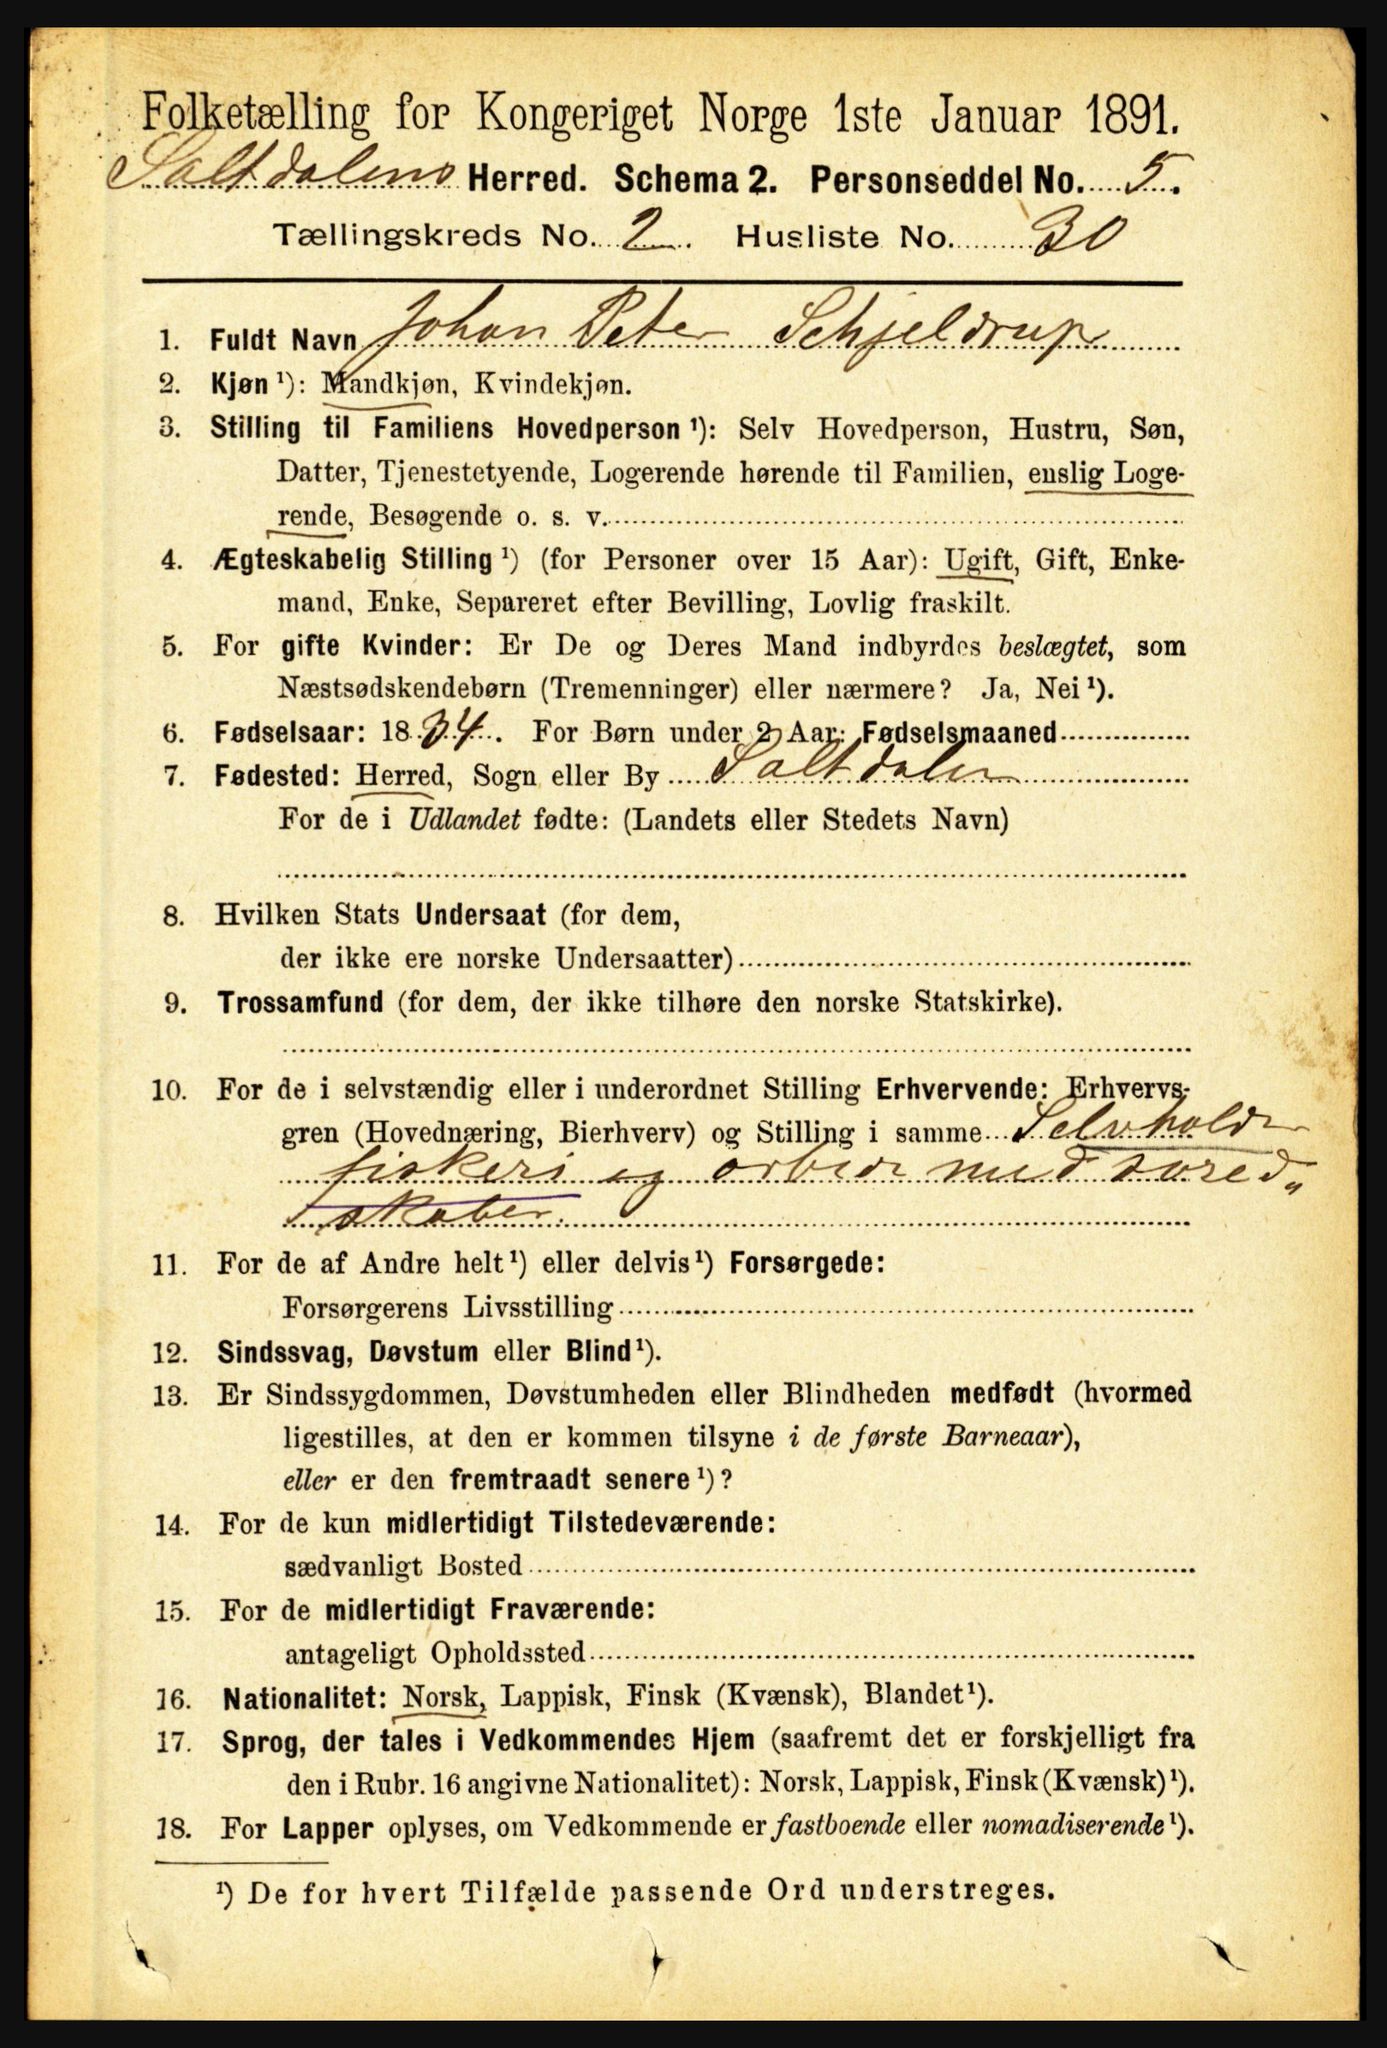 Folketælling for Kongeriget Norge 1ste Januar 1891.
Saltdalens Herred. Schema 2. Personseddel No. 5.
Tællingskreds No. 2. Husliste No. 30
1. Fuldt Navn Johan Peter Schjeldrup
2. Kjøn ¹): Mandkjøn, Kvindekjøn.
3. Stilling til Familiens Hovedperson ¹): Selv Hovedperson, Hustru, Søn,
Datter, Tjenestetyende, Logerende hørende til Familien, enslig Loge-
rende, Besøgende o. s. v.
4. Ægteskabelig Stilling ¹) (for Personer over 15 Aar): Ugift, Gift, Enke-
mand, Enke, Separeret efter Bevilling, Lovlig fraskilt.
5. For gifte Kvinder: Er De og Deres Mand indbyrdes beslægtet, som
Næstsødskendebørn (Tremenninger) eller nærmere? Ja, Nei ¹).
6. Fødselsaar: 1834. For Børn under 2 Aar: Fødselsmaaned
7. Fødested: Herred, Sogn eller By Saltdalen
For de i Udlandet fødte: (Landets eller Stedets Navn)
8. Hvilken Stats Undersaat (for dem,
der ikke ere norske Undersaatter)
9. Trossamfund (for dem, der ikke tilhøre den norske Statskirke).
10. For de i selvstændig eller i underordnet Stilling Erhvervende: Erhvervs-
gren (Hovednæring, Bierhverv) og Stilling i samme Selvholder
fiskeri og arbeide med
skaber.
11. For de af Andre helt ¹) eller delvis ¹) Forsørgede:
Forsørgerens Livsstilling
12. Sindssvag, Døvstum eller Blind ¹).
13. Er Sindssygdommen, Døvstumheden eller Blindheden medfødt (hvormed
ligestilles, at den er kommen tilsyne i de første Barneaar),
eller er den fremtraadt senere ¹)?
14. For de kun midlertidigt Tilstedeværende:
sædvanligt Bosted
15. For de midlertidigt Fraværende:
antageligt Opholdssted
16. Nationalitet: Norsk, Lappisk, Finsk (Kvænsk), Blandet ¹).
17. Sprog, der tales i Vedkommendes Hjem (saafremt det er forskjelligt fra
den i Rubr. 16 angivne Nationalitet): Norsk, Lappisk, Finsk (Kvænsk) ¹).
18. For Lapper oplyses, om Vedkommende er fastboende eller nomadiserende ¹).
¹) De for hvert Tilfælde passende Ord understreges.